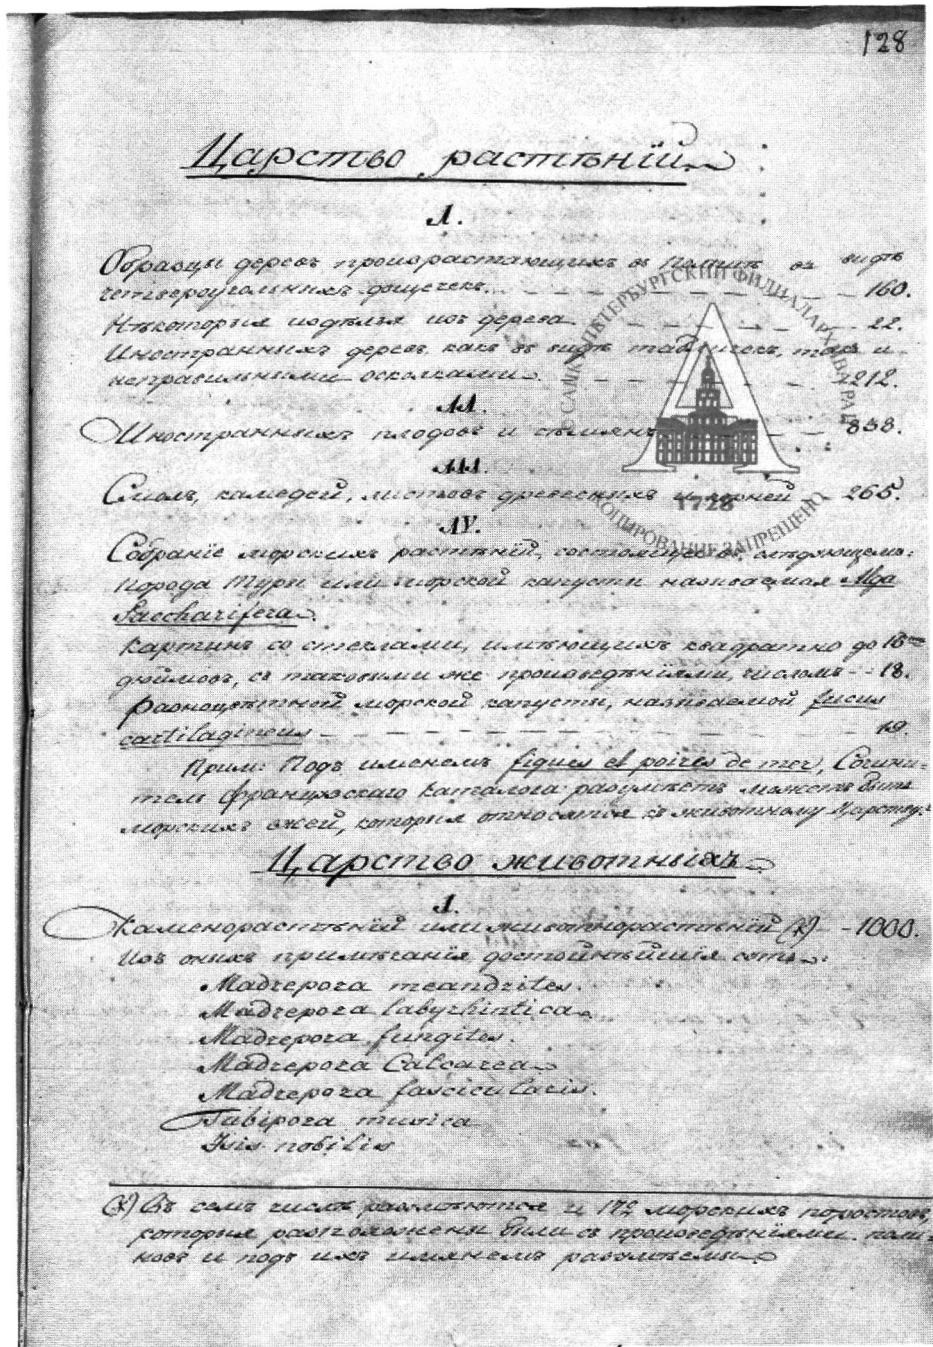 128
Царство растѣній
I.
Образцы деревъ произрастающихъ въ Польшѣ въ видѣ
четвероугольныхъ дощечекъ — 160.
Нѣкоторыя издѣлья изъ дерева — 22.
Иностранныхъ деревъ, какъ въ видѣ табличекъ, такъ и
неправильными осколками — 1212.
II.
Иностранныхъ плодовъ и сѣмянъ — 838.
III.
Смолъ, камедей, листьевъ древесныхъ и корней — 265.
IV.
Собраніе морскихъ растѣній, состоящее въ слѣдующемъ:
Порода Туры или морской капусты называемая Alga
Saccharifera.
Картинъ со стеклами, имѣющихъ квадратно до 18
дюймовъ, съ таковыми же произведѣніями, числомъ — 18.
Разноцвѣтной морской капусты, называемой fucus
cartilagineus — 19.
Прим: Подъ именемъ figues et poires de mer, Сочини-
тель французскаго Каталога разумѣетъ можетъ быть
морскихъ ежей, которыя относятся къ животному Царству.
Царство животныхъ
I.
Каменорастѣній или животнорастѣній (x) — 1000.
Изъ оныхъ примѣчанія достойнѣйшія суть:
Madrepora meandrites.
Madrepora labyrhintica
Madrepora fungites.
Madrepora Calcarea
Madrepora fascicularis.
Tubipora musica
Isis nobilis
(x) Въ семъ числѣ разумѣются и 172 морскихъ поростовъ,
которыя расположены были съ произведѣніями поли-
повъ и подъ ихъ имянемъ разумѣемы
САНКТ-ПЕТЕРБУРГСКИЙ ФИЛИАЛ АРХИВА РАН
1728
КОПИРОВАНИЕ ЗАПРЕЩЕНО